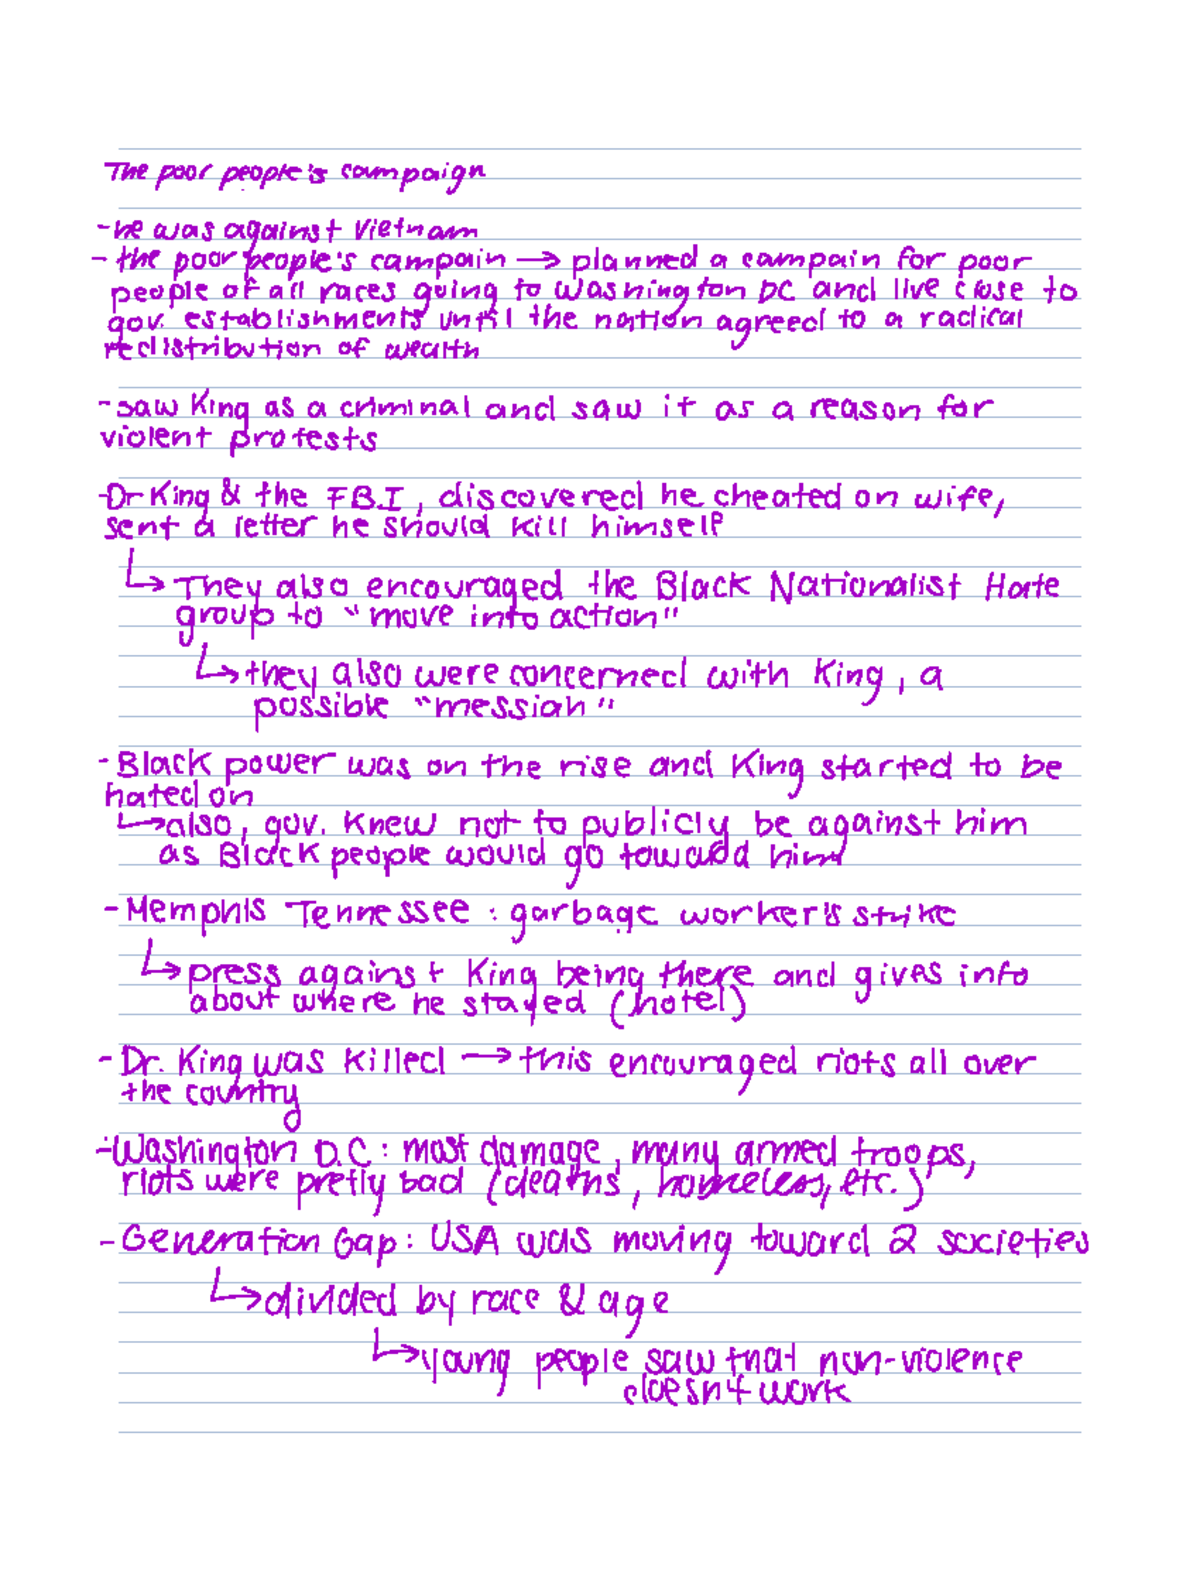 The poor people's campaign
-he was against Vietnam
- the poor people's campain → planned a campain for poor
people of all races going to Washington DC and live close to
gov. establishments until the nation agreed to a radical
redistribution of wealth
-saw King as a criminal and saw it as a reason for
violent protests
-Dr King & the F.B.I, discovered he cheated on wife,
sent a letter he should kill himself
↳ They also encouraged the Black Nationalist Hate
group to "move into action"
↳ they also were concerned with King, a
possible "messiah"
- Black power was on the rise and King started to be
hated on
↳ also, gov. knew not to publicly be against him
as Black people would go toward him
- Memphis Tennessee : garbage worker's strike
↳ press against King being there and gives info
about where he stayed (hotel)
- Dr. King was killed → this encouraged riots all over
the country
-Washington D.C : most damage, many armed troops,
riots were pretty bad (deaths, homeless, etc.)
- Generation Gap: USA was moving toward 2 societies
↳ divided by race & age
↳ young people saw that non-violence
doesn't work